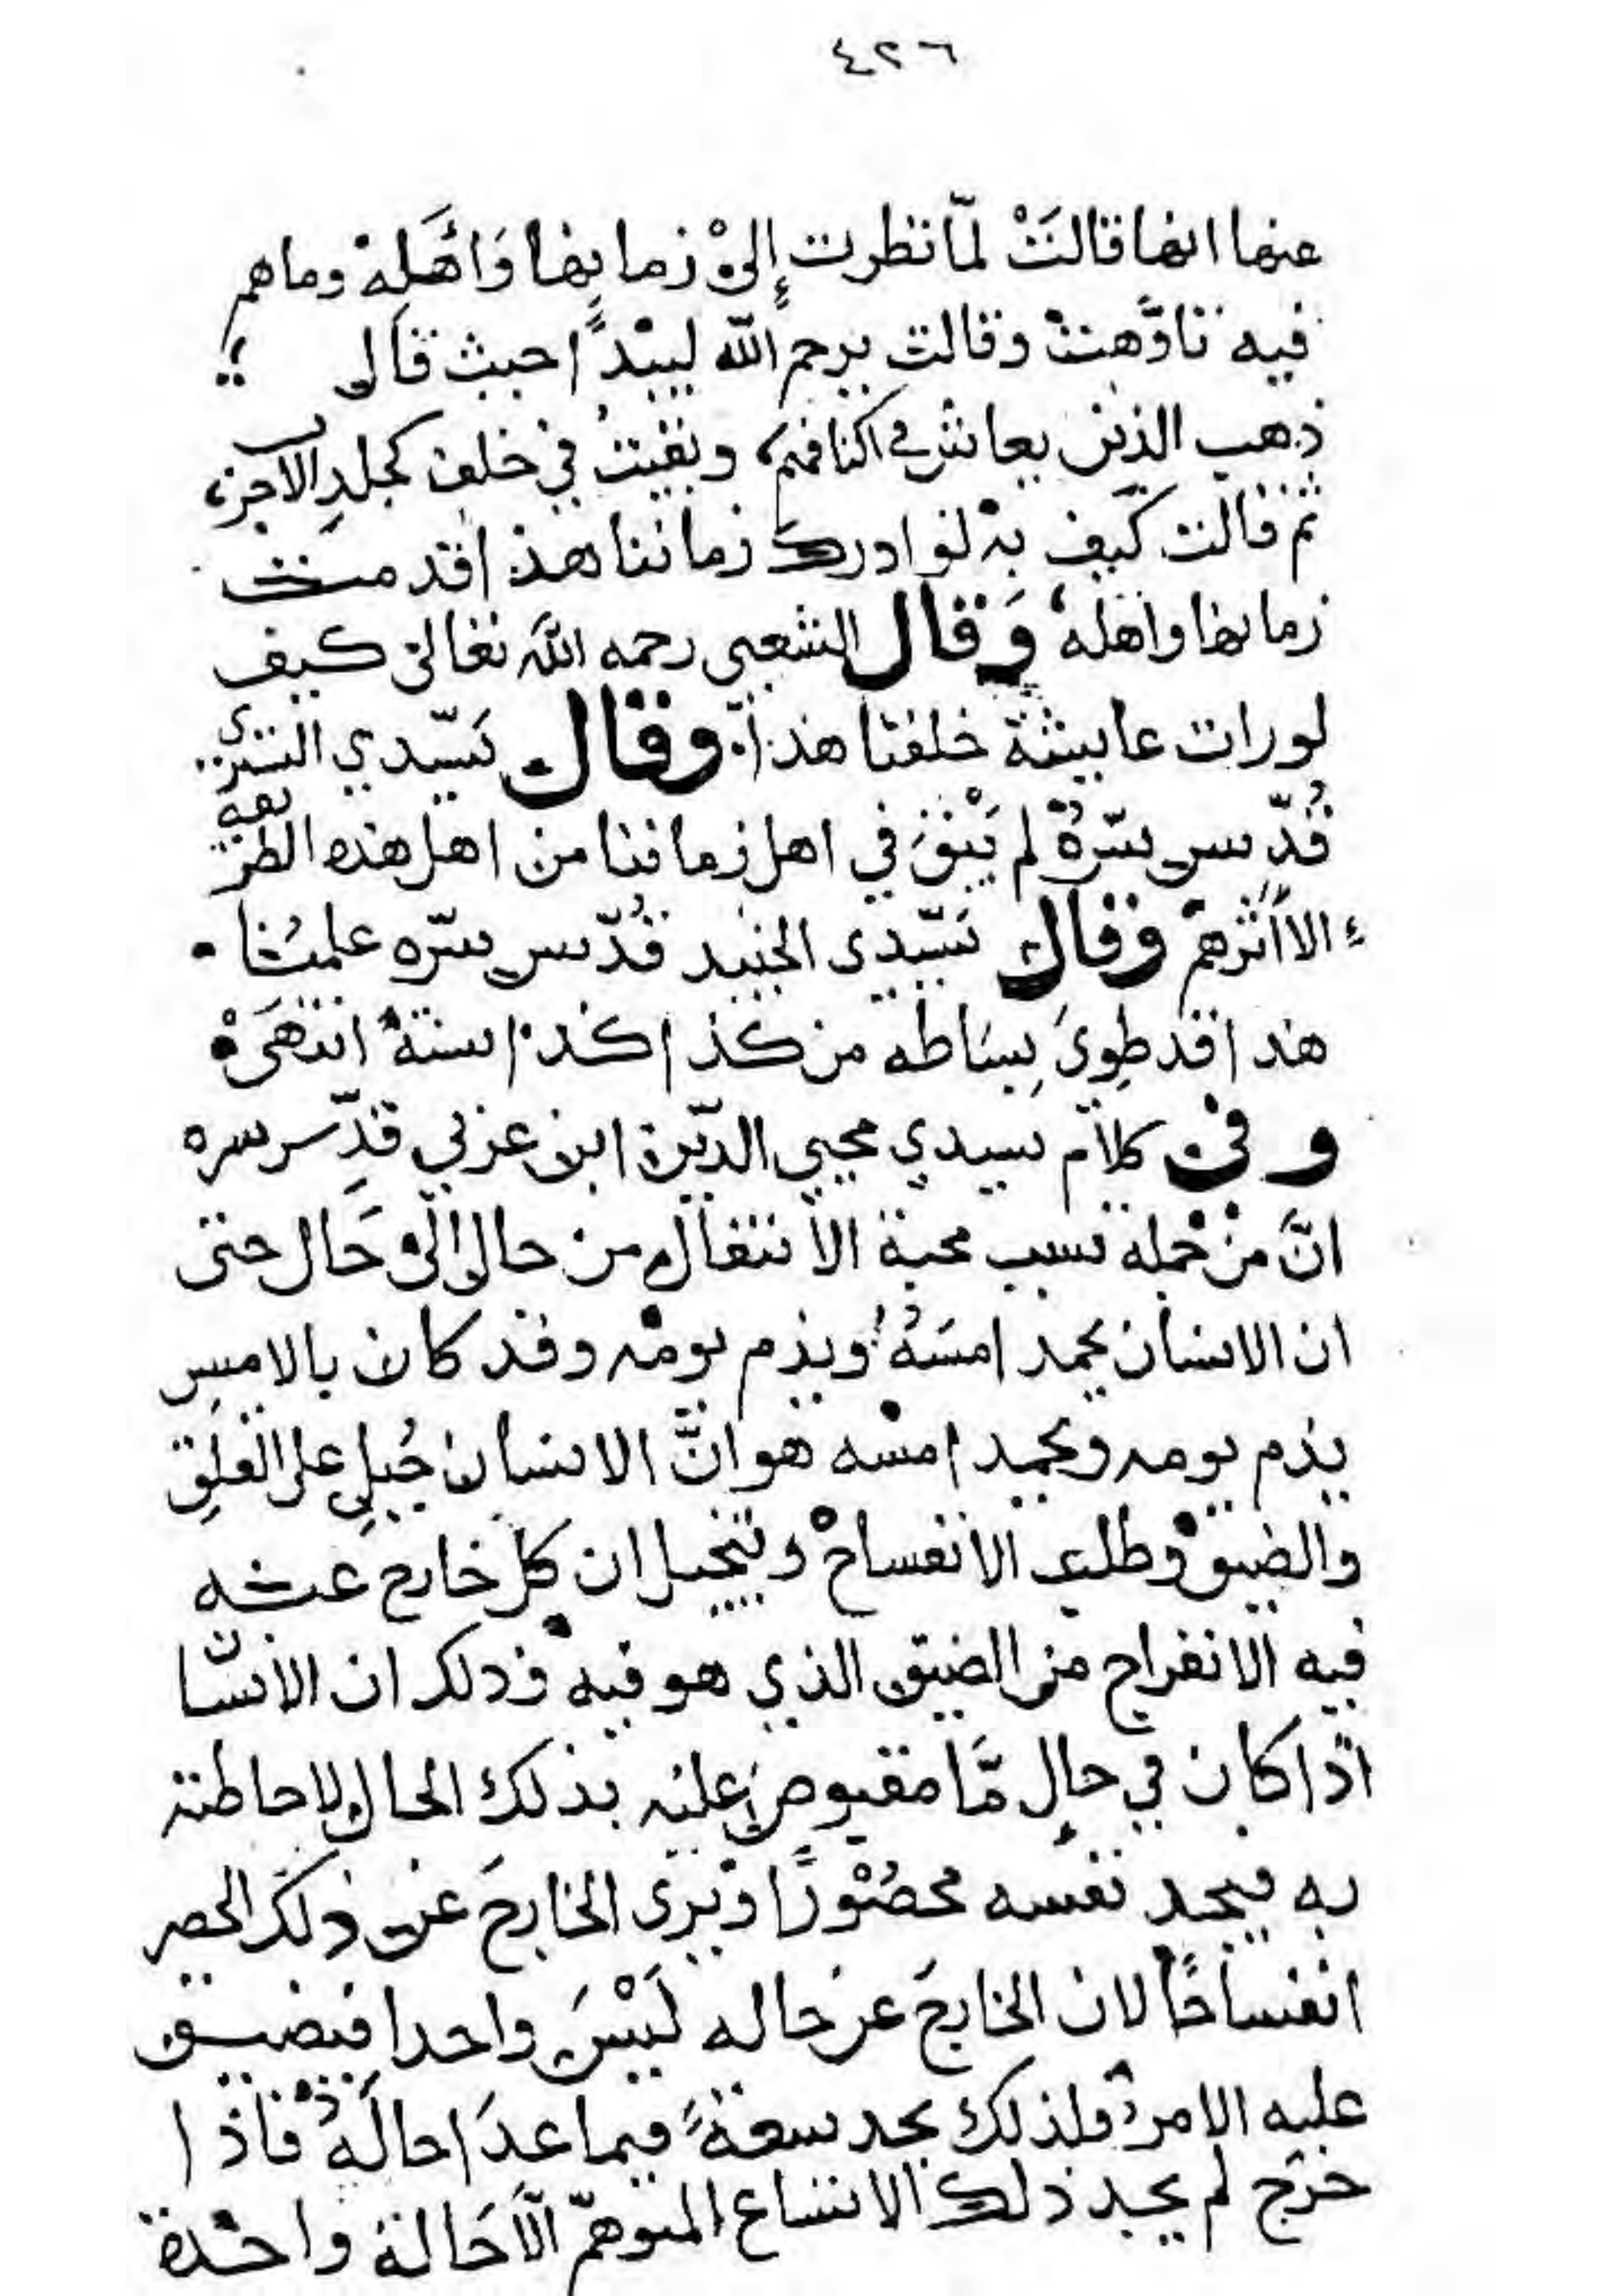 ٤٢٦
عنها انها قالَتْ لمّا نظرت إلىْ زمانِها وَأهَلِهْ وماهم
فيه تاوّهتْ وقالت يرحم اللّه لبيْدًا حيث قال ؛
ذهب الذين يعاش في اكنافهم، وبقيتُ في خلف كجلدِ الاجرب،
ثم قالت كَيف بهْ لو ادرك زماننا هذا قدمت
زمانها واهله، وَقال الشعبي رحمه اللّه تعالىٰ كيف
لو رات عايشة خلفنا هذا. وقال سَيّدي التستري
قُدّس سّرهُ لم يَبْقَ في اهل زماننا من اهل هذه الطريقة
الا أثرهم وقال سَيّدي الجنيد قُدّس سّره علمُنا
هذا قد طِوىَ بِسَاطه من كذا كذا سنة انتهَىْ
وفي كلام سيدي محيي الدّين ابن عربي قدِّس سره
انَّ منْ جْملة سبب محبة الانتقال من حال الىْ حَال حتى
ان الانسان يحمد امسَهُ ويذم يومْه وقد كان بالامس
يذم يومه ويحمد امسْه هو انَّ الانسان جُبِلِ على القلِق
والضيقْ وطلب الانفساحْ ويتخيل ان كل خارج عنه
فيه الانفراج من الضيق الذي هو فيه وذلك ان الانسّان
اذا كان في حالٍ مَّا مقبوضٍ عليْه بذلك الحال لاحاطته
به فيجد نفسه محصُوْرًا ويْرى الخارجَ عن ذلكَ الحصر
انفساحًا لان الخارجَ عن حاله لَيْسَ واحدا فيضيق
عليه الامر فلذلك يجد سعةً فيما عدَا حالَهُ فاذا
خرج لم يجد ذلك الاتساع المتوهّم الّا حَالة واحْدة